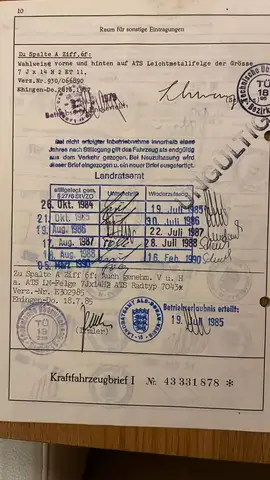 10
Raum für sonstige Eintragungen
Zu Spalte A Ziff.6f:
Wahlweise vorne und hinten auf ATS Leichtmetallfelge der Grösse
7 J x 14 H 2 ET 11.
Verz.Nr.930/066890
Ehingen-Do.
UNGÜLTIG
Bei nicht erfolgter Inbetriebnahme innerhalb eines
Jahres nach Stillegung gilt das Fahrzeug als endgültig
aus dem Verkehr gezogen. Bei Neuzulassung wird
dieser Brief eingezogen u. ein neuer Brief ausgefertigt.
Landratsamt
stillgelegt gem. § 27/6 StVZO Unterschrift Wiederzulassung
26. Okt. 1984 19. Juli 1985
21. Okt. 1985 30. Juli 1986
19. Aug. 1986 22. Juli 1987
17. Aug. 1987 28. Juli 1988
18. Aug. 1988 16. Feb. 1990
1990
Zu Spalte A Ziff. 6f: Auch genehm. V u. H
a. ATS LM-Felge 7Jx14H2 ATS Radtyp 7043*
Verz.-Nr. E302985
Ehingen-Do. 18.7.85
Betriebserlaubnis erteilt:
19. 1985
LANDRATSAMT ALB-DONAU-KREIS
Kraftfahrzeugbrief I № 43331878 *